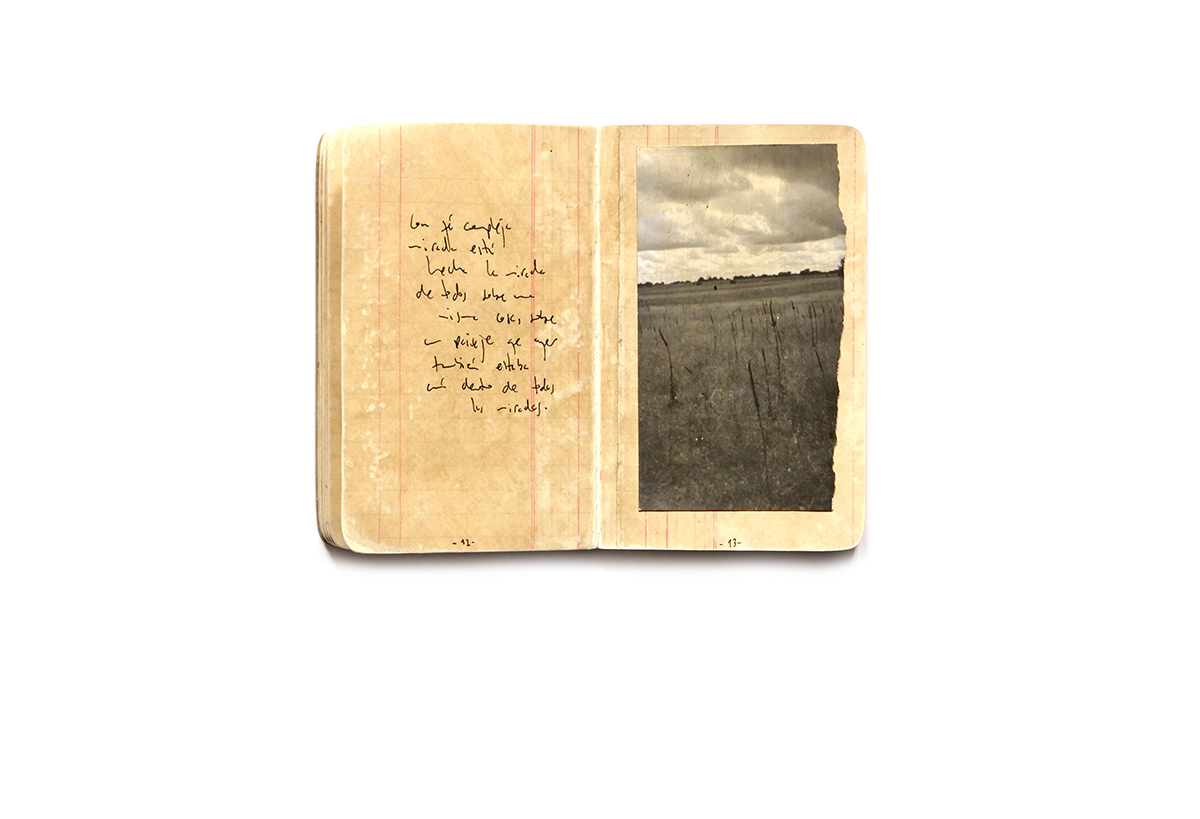 mirada está
hecha la mirada
de todos sobre una
misma cosa, sobre
un paisaje que ayer
también estaba
ahí dentro de todas
las miradas.
-12-
-13-